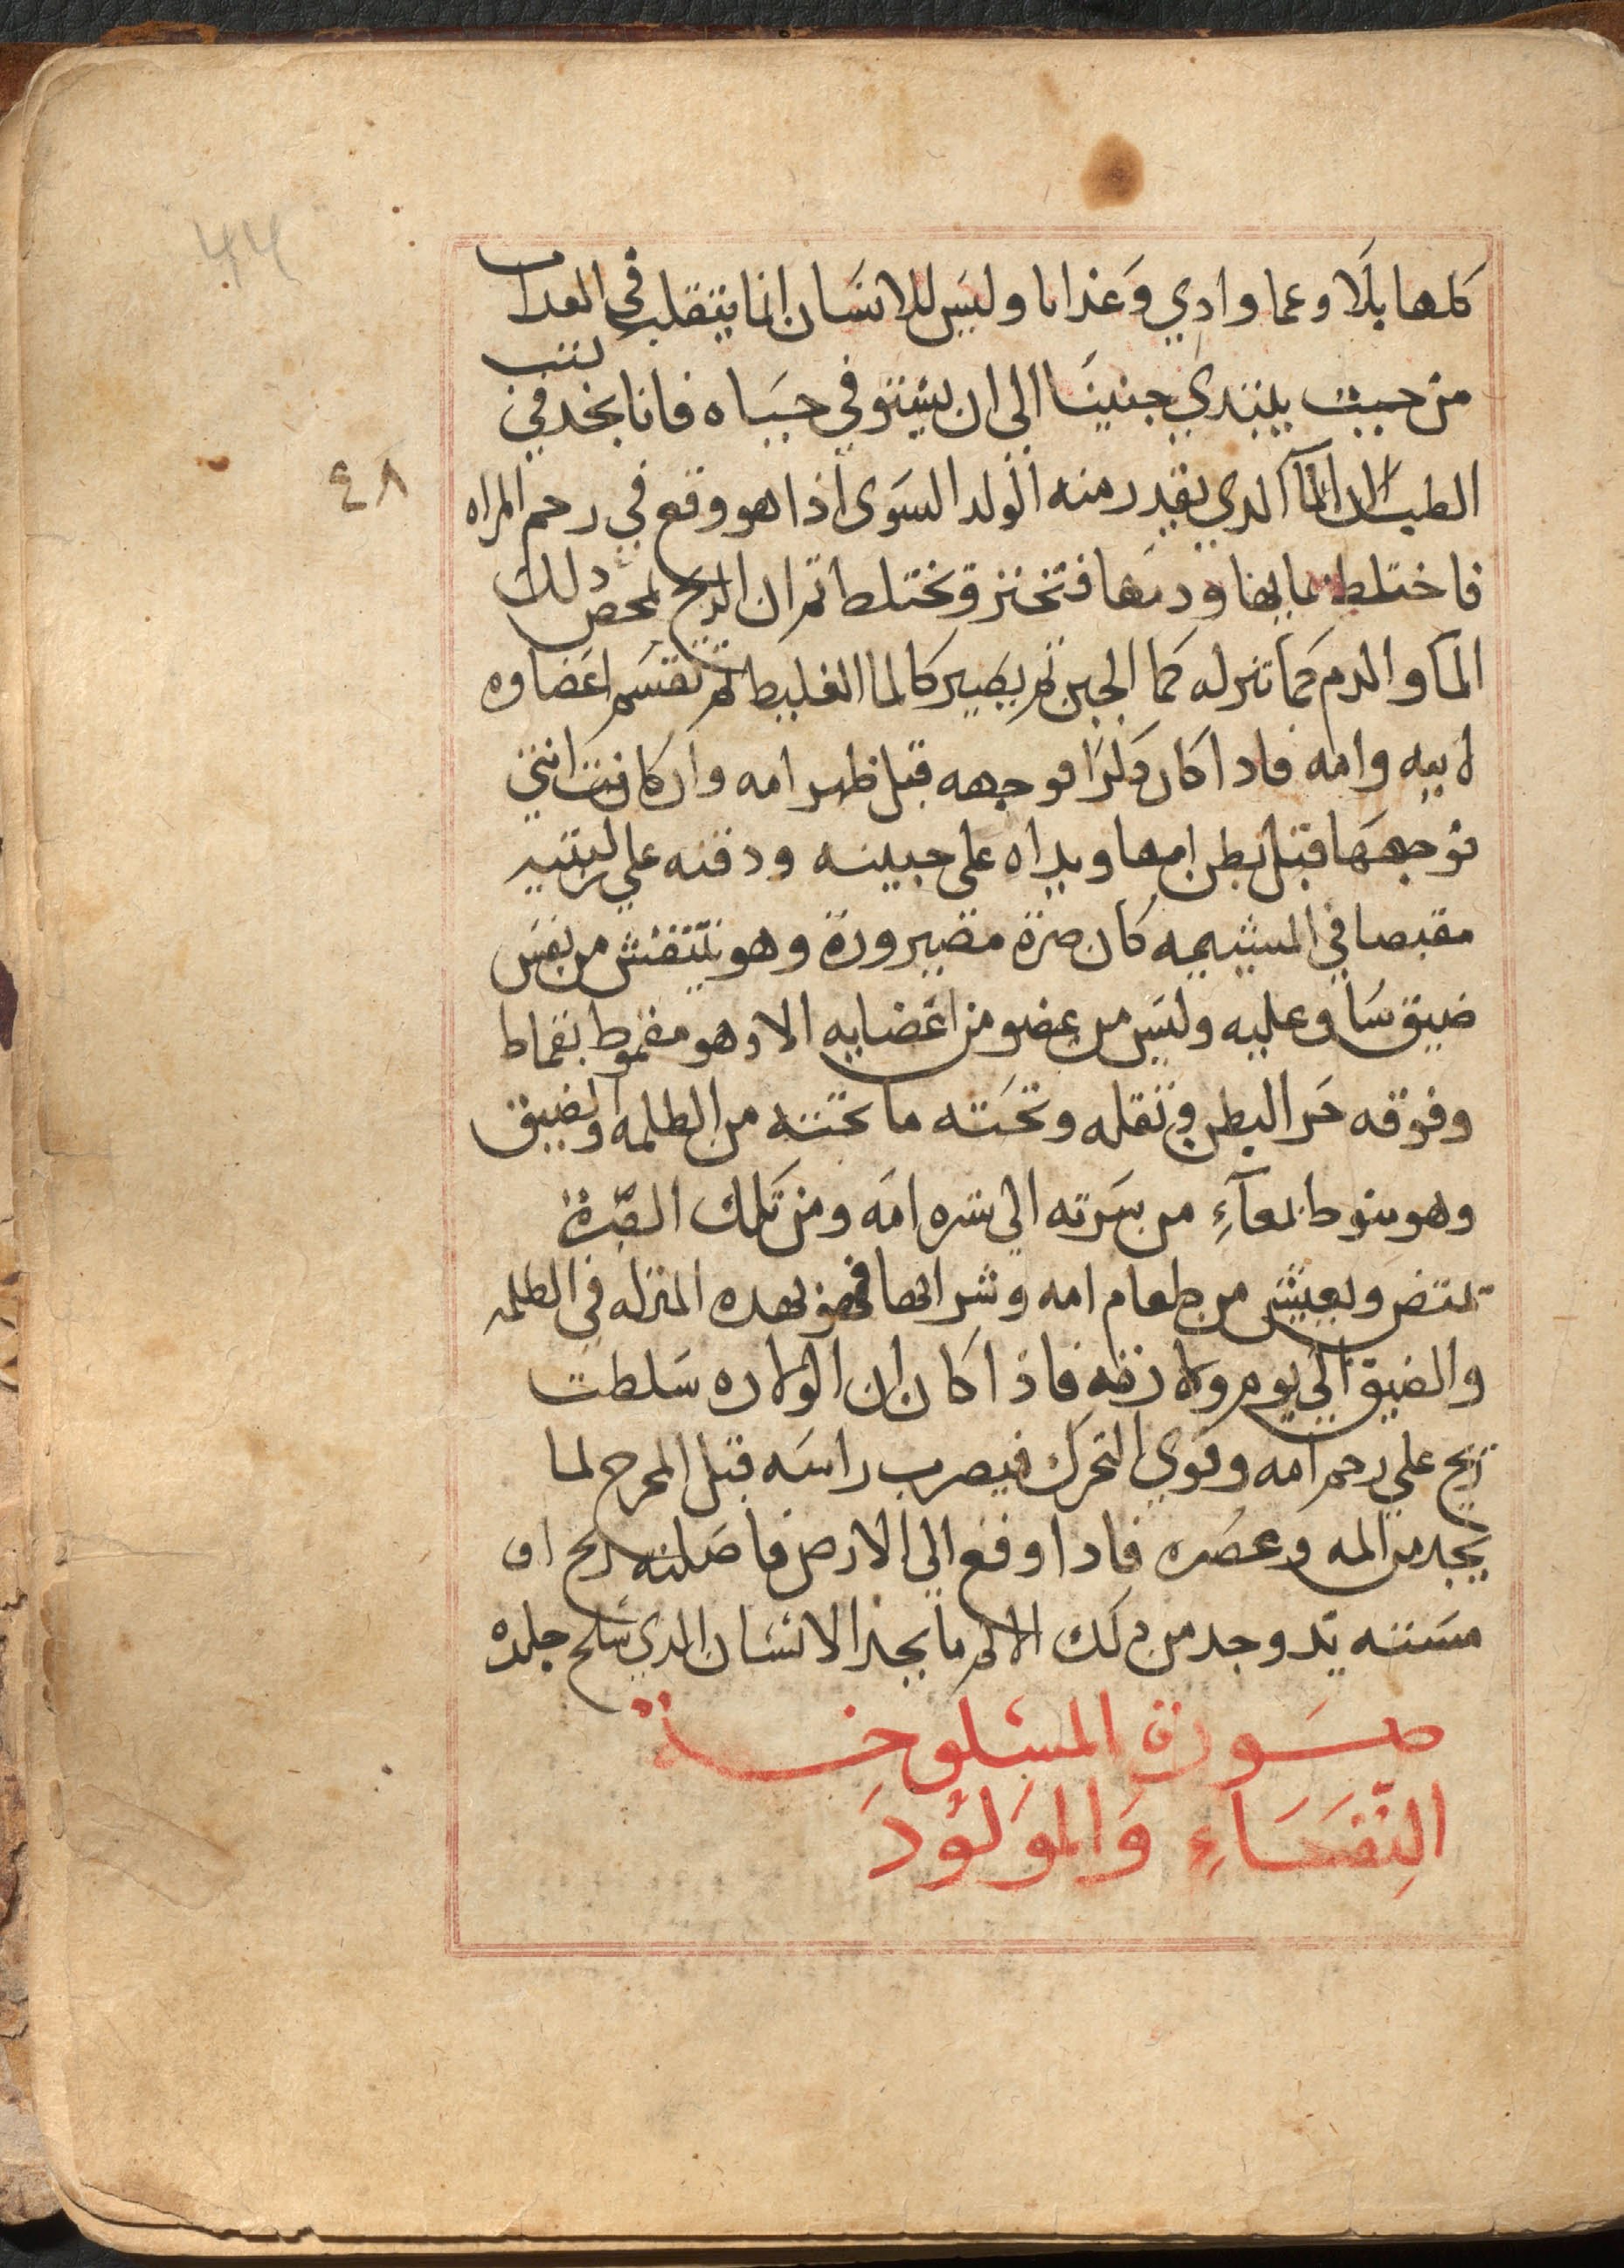 ٤٨
كلها بلا وعما واذي وعذابا وليس للانسان انما يتقلب في العداب
من حيث يبتدي جنينا الي ان يستوفي حياه فانا نجد في كتب
الطب ان الماآ الدي يقدر منه الولد السوى اذا هو وقع في رحم المراه
فاختلط بمايها ودمها فتخنز وتختلط ثم ان الريح تمخض دلك
المآ والدم كما تنزله كما الجبن ثم يصير كالما الغليظ ثم تقسم اعضاوه
لابيه وامه فادا كان دكرا فوجهه قبل ظهر امه وان كانت انثي
فوجهها قبل بطن امها ويداه على جبينه ودقنه علي ركبتيه
مقبصا في المشيمه كان صرة مصرورة وهو يتنفش من نفس
ضيق شاق عليه وليس من عضو من اعضايه الا وهو مقموط بقماط
وفوقه حر البطن وثقله وتحته ما تحته من الظلمه والضيق
وهو منوط بمعآءِ من سرته الي سره امه ومن تلك الصّرة
يمتص ويعيش من طعام امه وشرابها فهو بهده المنزله في الظلمه
والضيق الي يوم ولادته فاذا كان ان الولاده سلطت
ريح علي رحم امه وقوي التحرك فيصرب راسه قبل المخرج لما
يجد من المه وعصره فادا وقع الي الارض فاصلته ريح او
مسته يد وجد من دلك الالم ما يجد الانسان الدي سلخ جلده
صورة المسلوخة
النّفساءِ والمولود